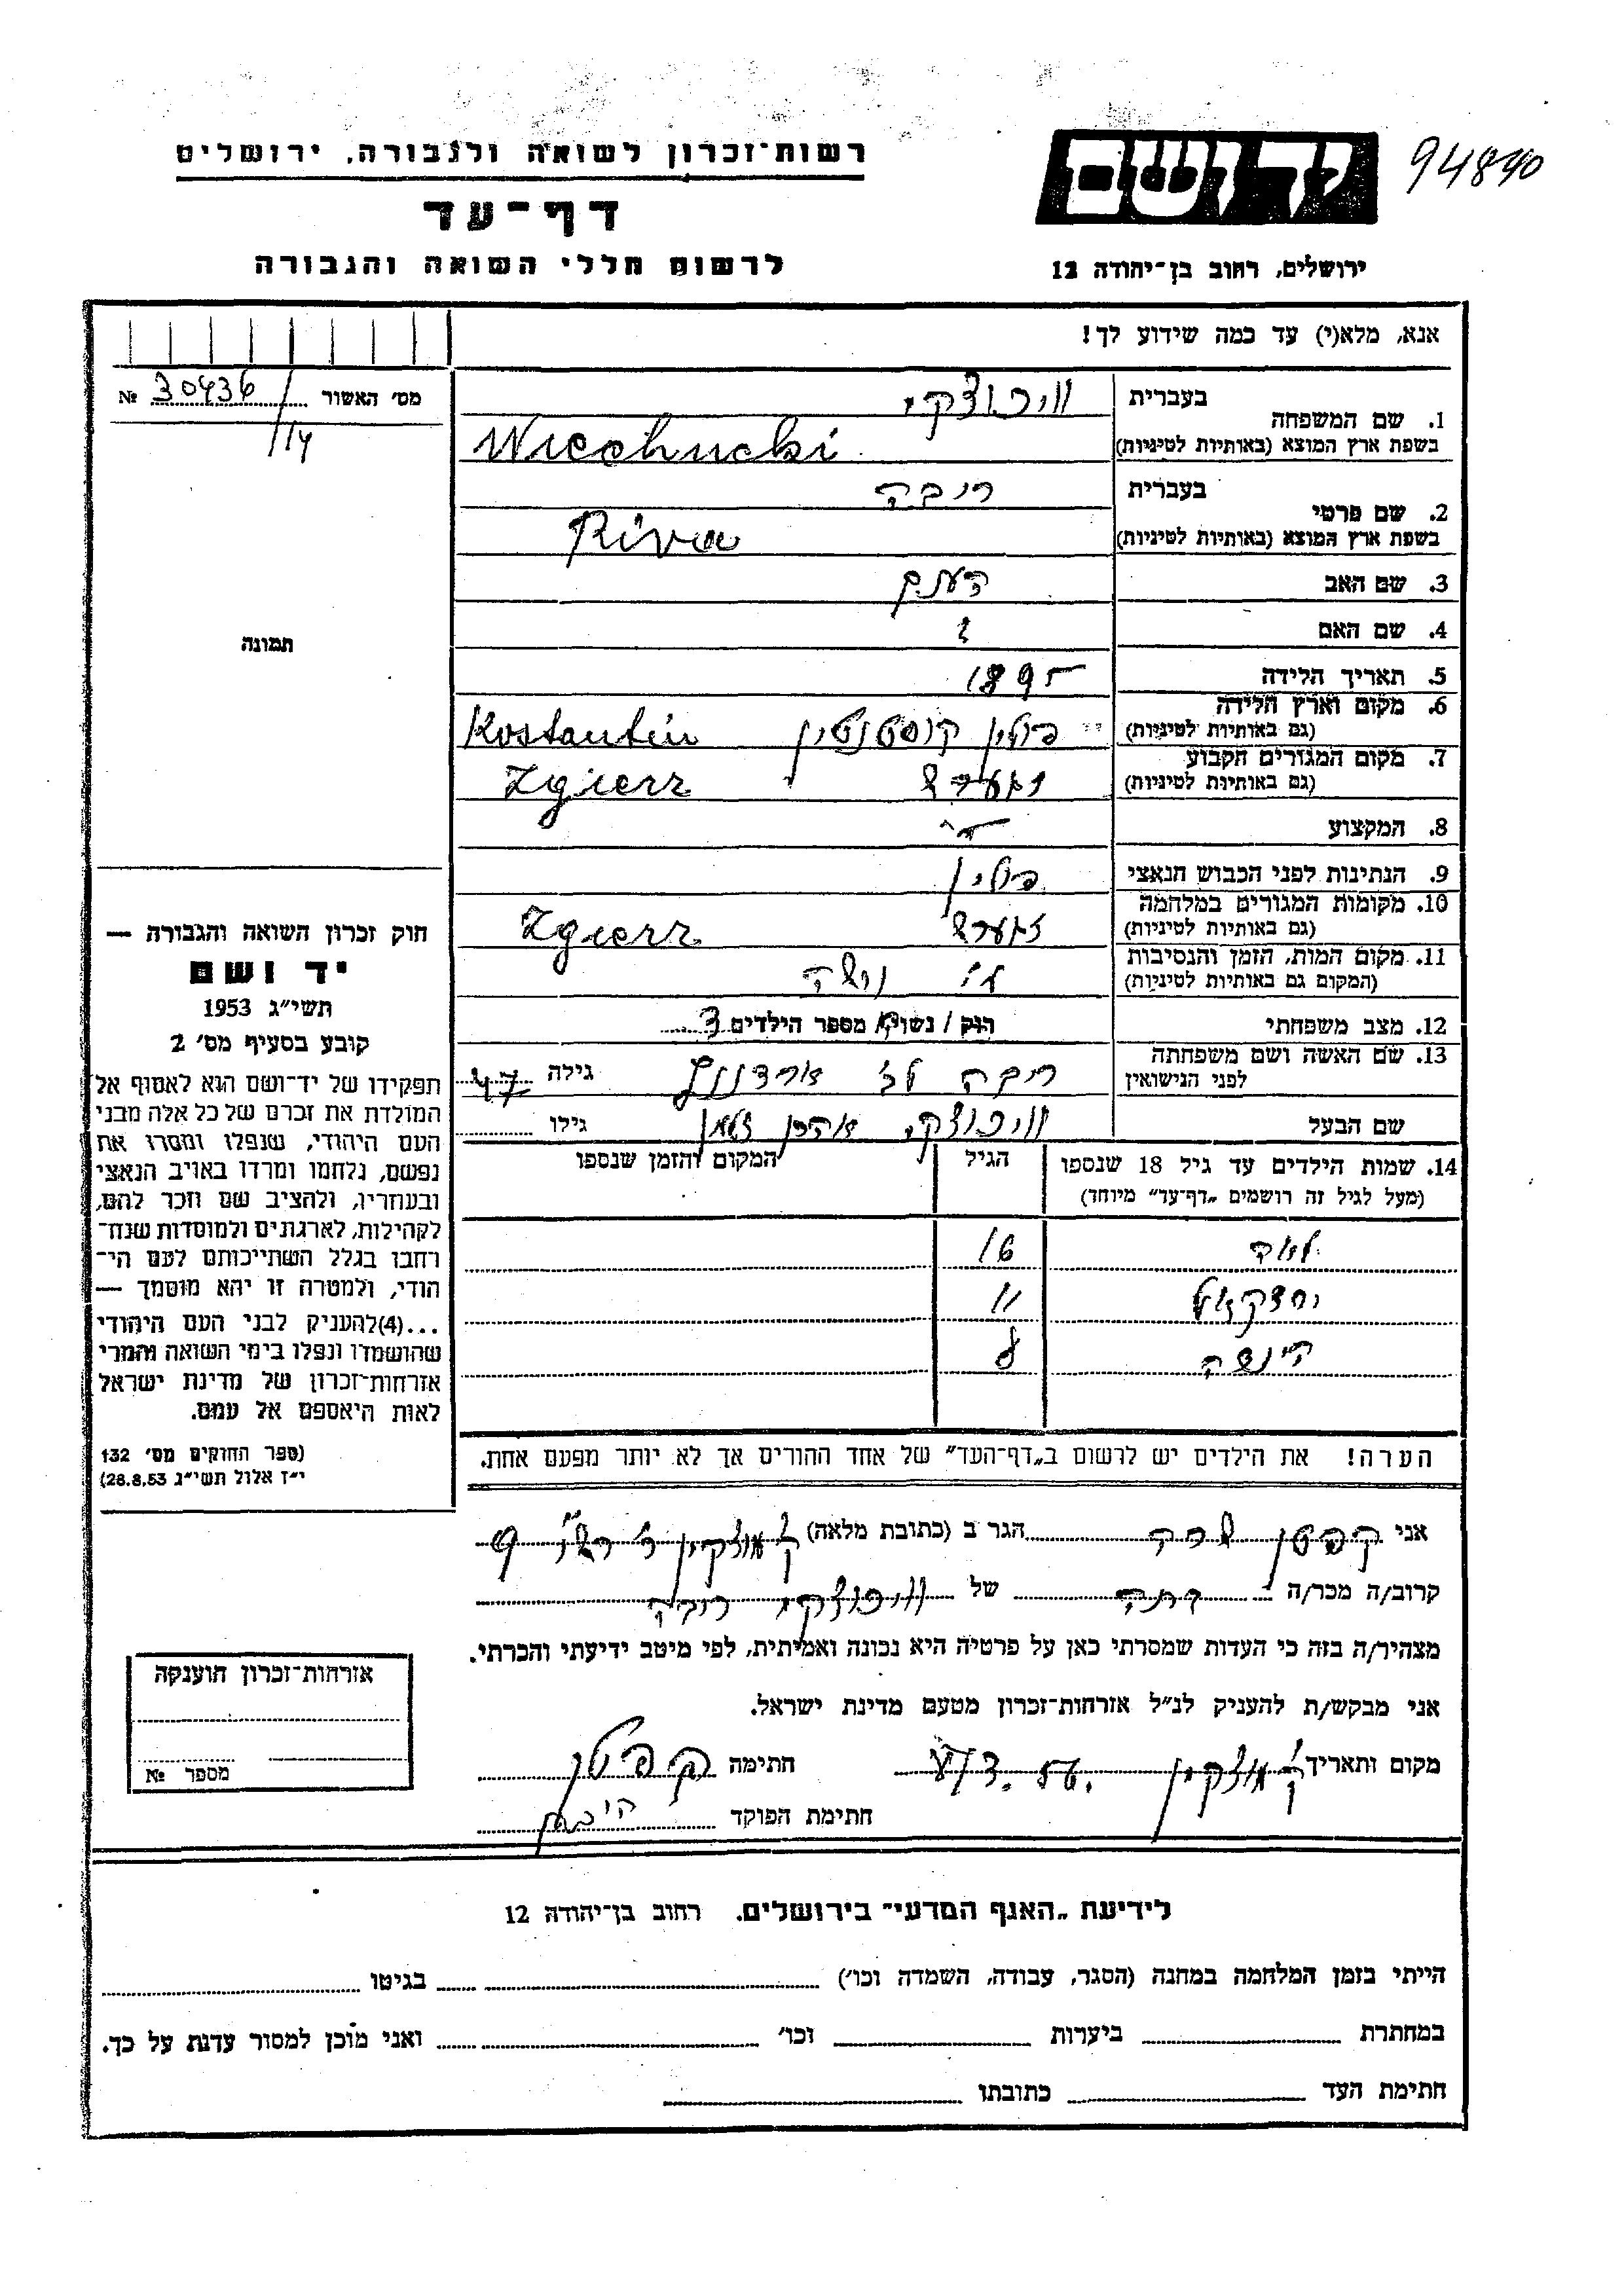 רשות־זכרון לשואה ולגבורה, ירושלים
דף־עד
לרשום חללי השואה והגבורה
יד ושם
94840
ירושלים, רחוב בן־יהודה 12
אנא, מלא(י) עד כמה שידוע לך!
מס' האשור № 30436/
114
תמונה
חוק זכרון השואה והגבורה —
יד ושם
תשי"ג 1953
קובע בסעיף מס' 2
תפקידו של יד־ושם הוא לאסוף אל
המולדת את זכרם של כל אלה מבני
העם היהודי, שנפלו ומסרו את
נפשם, נלחמו ומרדו באויב הנאצי
ובעוזריו, ולהציב שם וזכר להם,
לקהילות, לארגונים ולמוסדות שנח־
רחבו בגלל השתייכותם לעם הי־
הודי, ולמטרה זו יהא מוסמך —
...(4)להעניק לבני העם היהודי
שהושמדו ונפלו בימי השואה והמרי
אזרחות־זכרון של מדינת ישראל
לאות היאספם אל עמם.
(ספר החוקים מס' 132
י"ז אלול תשי"ג 28.8.53)
1. שם המשפחה
בעברית וויכוצקי
בשפת ארץ המוצא (באותיות לטיניות) Wiechucki
2. שם פרטי
בעברית ריבה
בשפת ארץ המוצא (באותיות לטיניות) Riva
3. שם האב
4. שם האם ?
5. תאריך הלידה 1895
6. מקום וארץ הלידה
(גם באותיות לטיניות) פולין קוסטנטין Kostantin
7. מקום המגורים הקבוע
(גם באותיות לטיניות) זגערש Zgierz
8. המקצוע
9. הנתינות לפני הכבוש הנאצי פולין
10. מקומות המגורים במלחמה
(גם באותיות לטיניות) זגערש Zgierz
11. מקום המות, הזמן והנסיבות
(המקום גם באותיות לטיניות)
12. מצב משפחתי רוק / נשוי/ מספר הילדים 3
13. שם האשה ושם משפחתה
לפני הנישואין ריבה גילה 47
שם הבעל וויכוצקי אהרן זלמן גילו
14. שמות הילדים עד גיל 18 שנספו הגיל המקום והזמן שנספו
(מעל לגיל זה רושמים „דף־עד" מיוחד)
לאה 16
יחזקאל 11
הינדה 8
הערה! את הילדים יש לרשום ב„דף־העד" של אחד ההורים אך לא יותר מפעם אחת.
אני קפטן שרה הגר ב (כתובת מלאה) ק. מוצקין 9
קרוב/ה מכר/ה של וויכוצקי ריבה
מצהיר/ה בזה כי העדות שמסרתי כאן על פרטיה היא נכונה ואמיתית, לפי מיטב ידיעתי והכרתי.
אני מבקש/ת להעניק לנ"ל אזרחות־זכרון מטעם מדינת ישראל.
מקום ותאריך ק. מוצקין חתימה קפטן
חתימת הפוקד
אזרחות־זכרון הוענקה
מספר №
לידיעת „האגף המדעי" בירושלים. רחוב בן־יהודה 12
הייתי בזמן המלחמה במחנה (הסגר, עבודה, השמדה וכו') בגיטו
במחתרת ביערות וכו' ואני מוכן למסור עדות על כך.
חתימת העד כתובתו